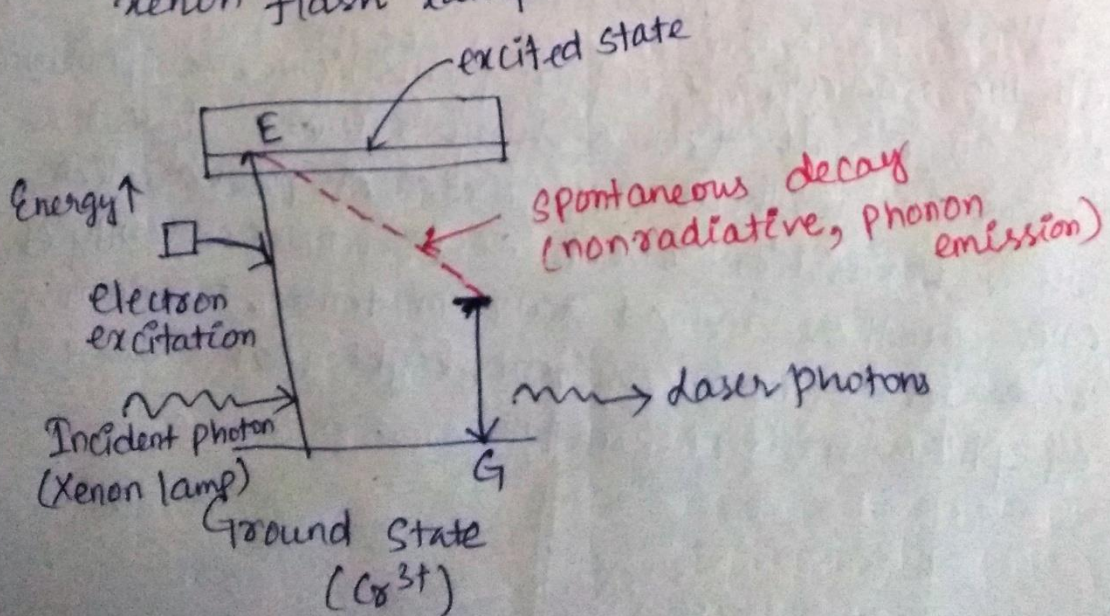 xenon flash lamp
excited state
E
Energy↑
spontaneous decay
(nonradiative, phonon
emission)
electron
excitation
Laser photons
Incident photon
(Xenon lamp)
G
Ground State
(Cr3+)